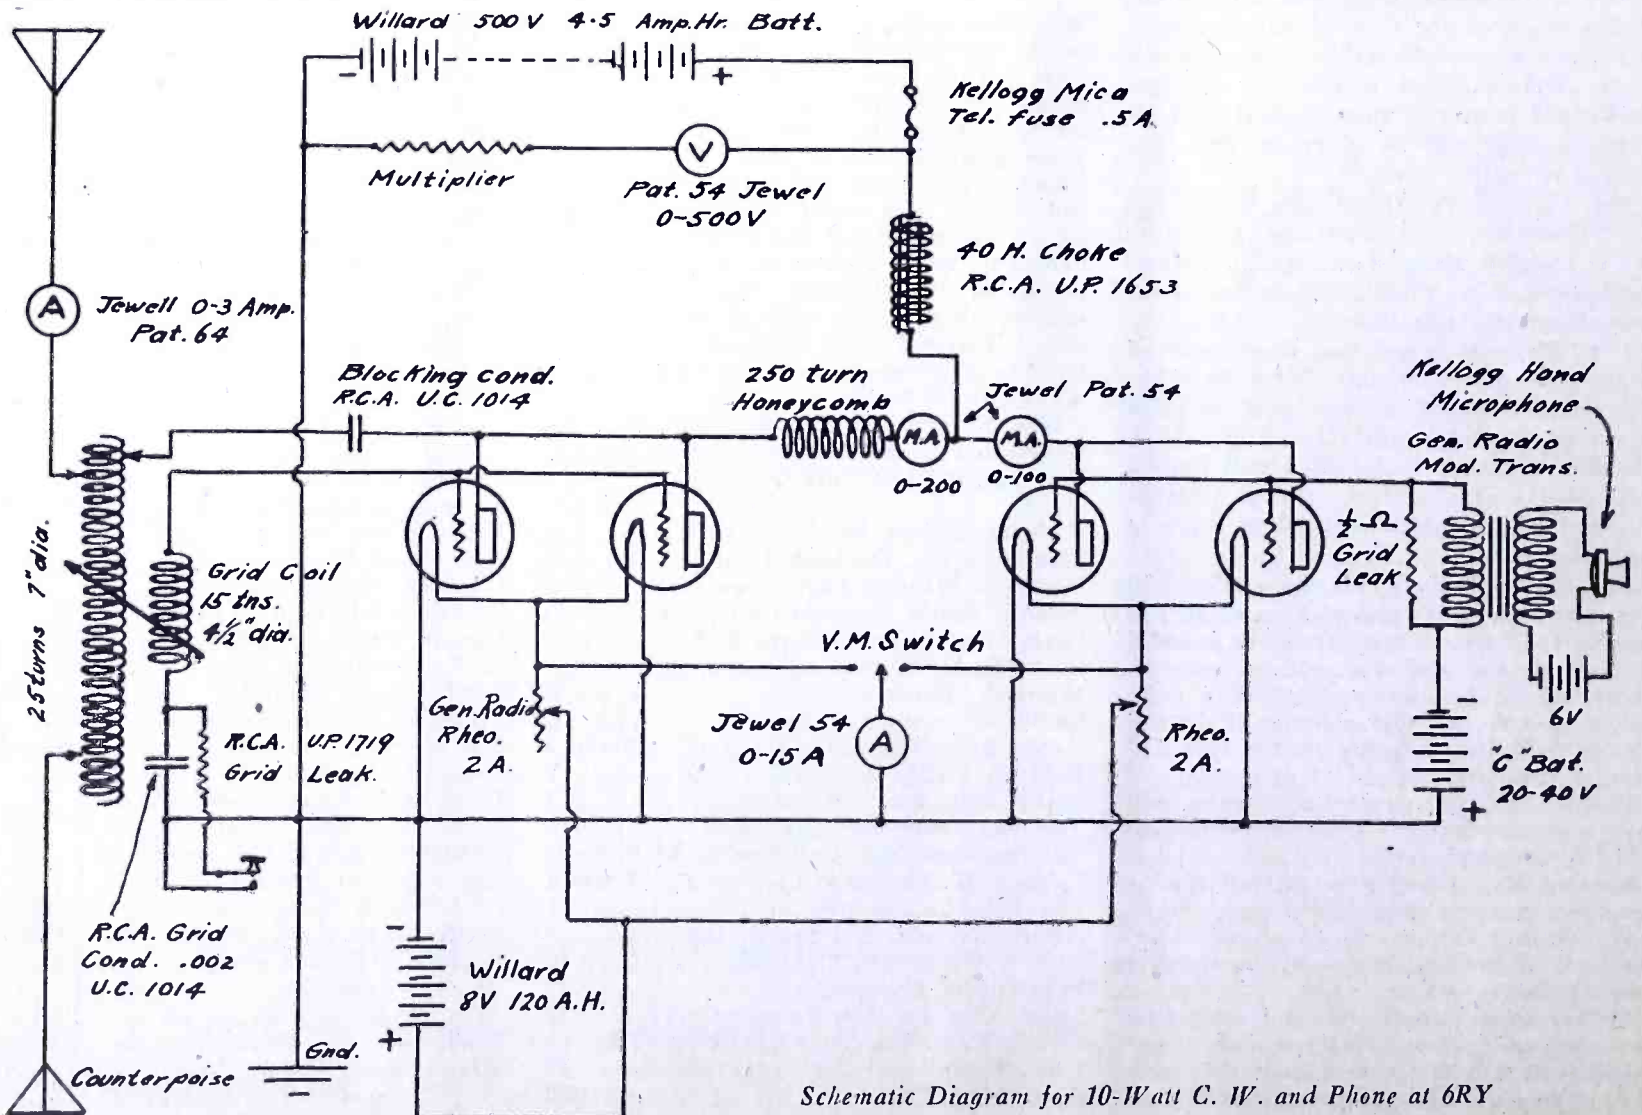 Willard 500V 4.5 Amp.Hr. Batt.
- +
Kellogg Mica
Tel. fuse .5A
V
Multiplier
Pat. 54 Jewel
0-500V
40 H. Choke
R.C.A. U.P. 1653
A
Jewell 0-3 Amp.
Pat. 64
Blocking cond.
R.C.A. U.C. 1014
250 turn
Honeycomb
Jewel Pat. 54
M.A.
M.A.
0-200
0-100
Kellogg Hand
Microphone
Gen. Radio
Mod. Trans.
25turns 7"dia.
Grid Coil
15 tns.
4½"dia.
½ Ω
Grid
Leak
V.M. Switch
Gen. Radio
Rheo.
2 A.
Jewel 54
0-15A
A
Rheo.
2A.
6V
-
"C" Bat.
20-40V
+
R.C.A. U.P. 1719
Grid Leak.
R.C.A. Grid
Cond. .002
U.C. 1014
-
Willard
8V 120 A.H.
+
Gnd.
Counterpoise
Schematic Diagram for 10-Watt C. W. and Phone at 6RY